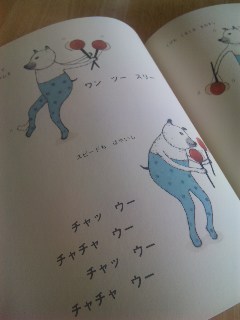 ワン　ツー　スリー
スピードも　はやいし
チャッ　ウー
チャチャ　ウー
チャッ　ウー
チャチャ　ウー